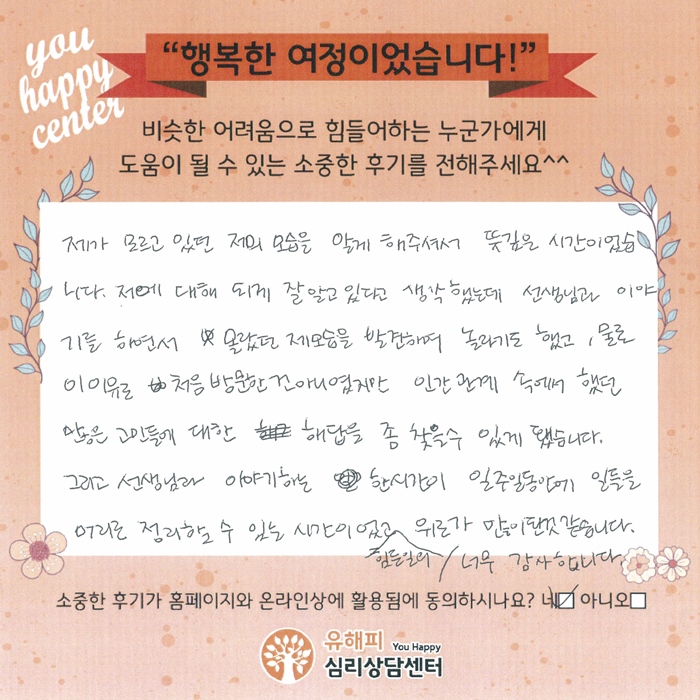 you
happy
center
“행복한 여정이었습니다!”
비슷한 어려움으로 힘들어하는 누군가에게
도움이 될 수 있는 소중한 후기를 전해주세요^^
제가 모르고 있던 저의 모습을 알게 해주셔서 뜻깊은 시간이었습
니다. 저에 대해 되게 잘 알고 있다고 생각했는데 선생님과 이야
기를 하면서 몰랐던 제모습을 발견하며 놀라기도 했고, 물론
이 이유로 처음 방문한건 아니였지만 인간관계 속에서 했던
많은 고민들에 대한 해답을 좀 찾을수 있게 됐습니다.
그리고 선생님과 이야기하는 한시간이 일주일동안에 일들을
머리로 정리할 수 있는 시간이었고 위로가 많이된것 같습니다.
힘든일의 너무 감사합니다.
소중한 후기가 홈페이지와 온라인상에 활용됨에 동의하시나요? 네☑ 아니오□
유해피 You Happy
심리상담센터